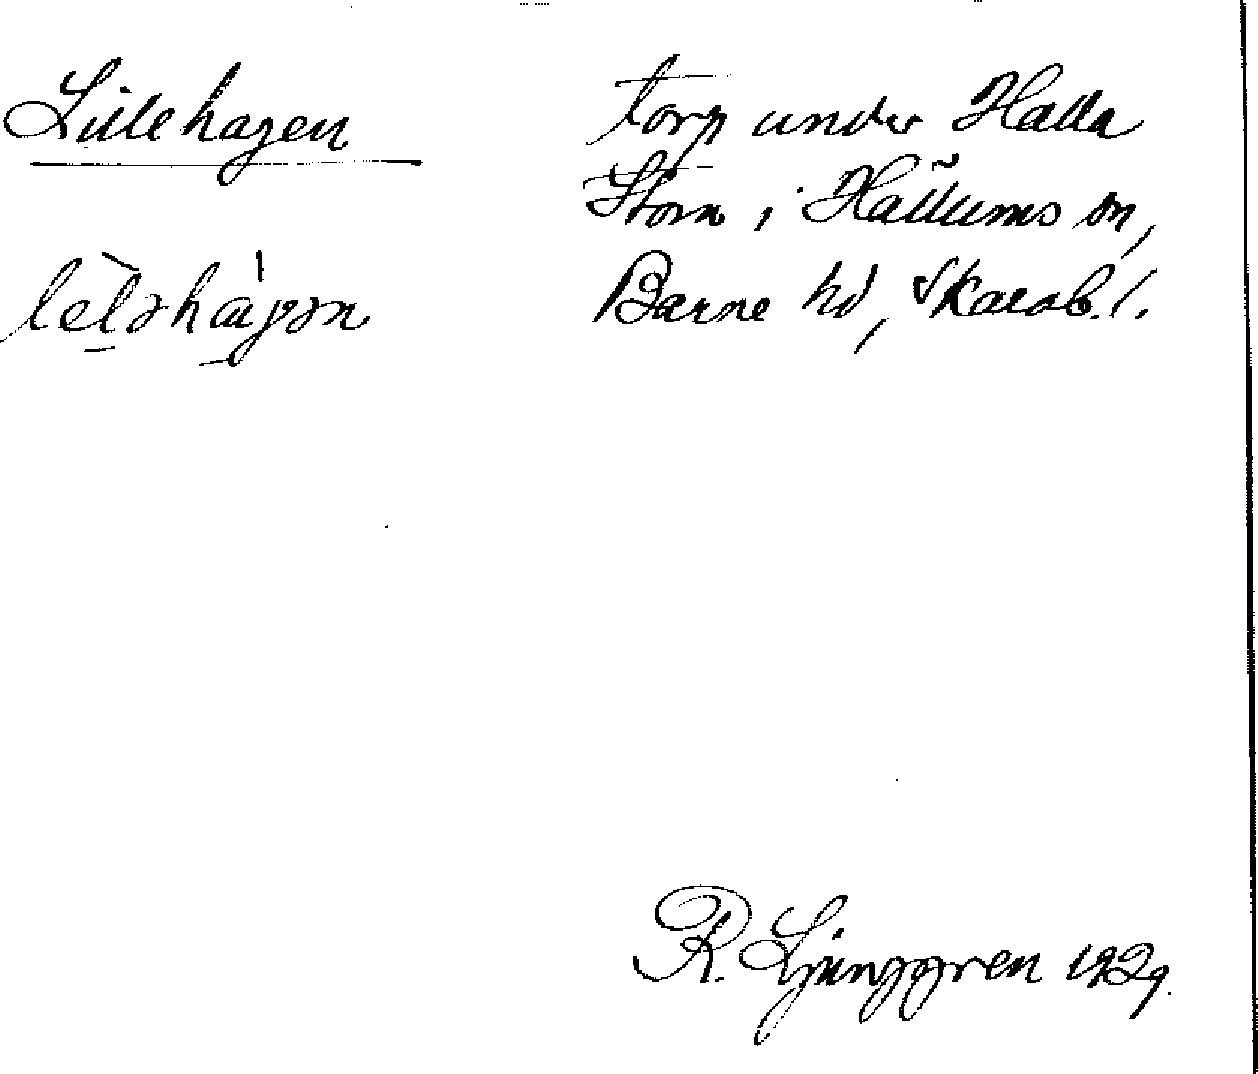 Lillehagen
leləhagən
torp under Halla
Storn i Hällums sn,
Barne hd, Skarab. l.
R. Ljunggren 1929.